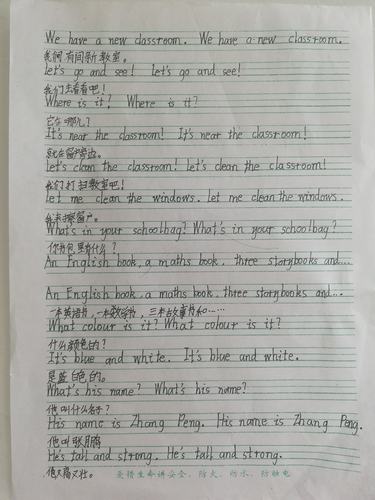 We have a new classroom. We have a new classroom.
我们有间新教室。
Let's go and see! Let's go and see!
我们去看看吧!
Where is it? Where is it?
它在哪儿?
It's near the classroom! It's near the classroom!
就在窗户旁边。
Let's clean the classroom! Let's clean the classroom!
我们打扫教室吧!
Let me clean the windows. Let me clean the windows.
我来擦窗户。
What's in your schoolbag? What's in your schoolbag?
你书包里有什么?
An English book, a maths book, three storybooks and...
An English book, a maths book, three storybooks and...
一本英语书,一本数学书,三本故事书和……
What colour is it? What colour is it?
什么颜色的?
It's blue and white. It's blue and white.
是蓝白色的。
What's his name? What's his name?
他叫什么名字?
His name is Zhang Peng. His name is Zhang Peng.
他叫张鹏
He's tall and strong. He's tall and strong.
他又高又壮。
爱惜生命讲安全、防火、防水、防触电